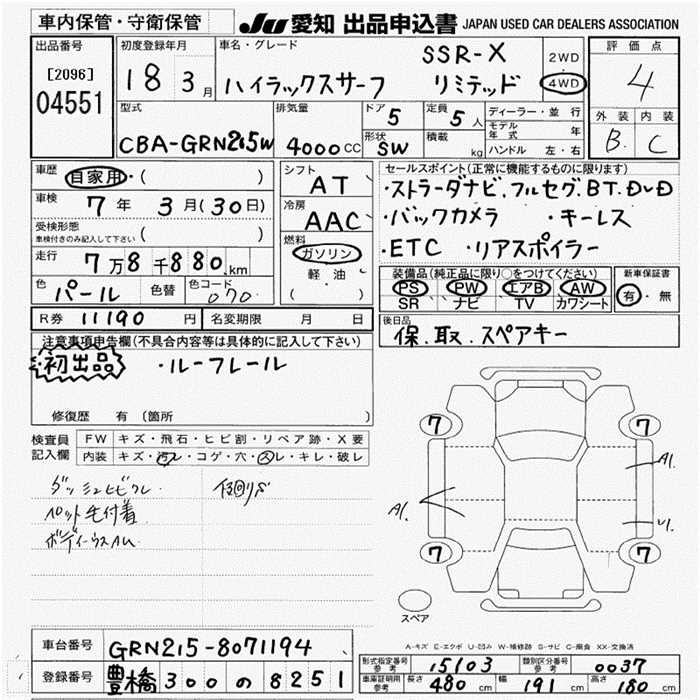 車内保管・守衛保管
JU 愛知 出品申込書 JAPAN USED CAR DEALERS ASSOCIATION
出品番号
[2096]
04551
初度登録年月
18 3月
車名・グレード
SSR-X
ハイラックスサーフ リミテッド
2WD
・
4WD
評価点
4
外装 内装
B. C
型式
CBA-GRN215W
排気量
4000cc
ドア 5
形状 SW
定員 5人
積載 kg
ディーラー・並行
モデル年式 年
ハンドル 左・右
車歴
自家用・( )
車検
7年 3月(30日)
受検形態
車検付きのみ記入して下さい ( )
走行
7万8千880km
色 パール 色替 色コード 070
シフト
AT
冷房
AAC
燃料
ガソリン
軽油
( )
セールスポイント(正常に機能するものに限ります)
・ストラーダナビ、フルセグ、BT、DVD
・バックカメラ ・キーレス
・ETC ・リアスポイラー
装備品(純正品に限り○をつけてください)
PS PW エアB AW
SR ナビ TV カワシート
新車保証書
有・無
R券 11190 円 名変期限 月 日
後日品
保、取、スペアキー
注意事項申告欄(不具合内容等は具体的に記入して下さい)
初出品 ・ルーフレール
修復歴 有(箇所 )
検査員
記入欄
FW キズ・飛石・ヒビ割・リペア跡・X要
内装 キズ・汚レ・コゲ・穴・スレ・キレ・破レ
ダッシュヒビワレ
ペット毛付着
ボディーウスAU
7 7
A1. A1.
U1.
7 7
スペア
A-キズ E-エクボ U-凹み W-補修跡 S-サビ C-腐食 XX-交換済
車台番号 GRN215-8071194
登録番号 豊橋300の8251
形式指定番号 参考 15103 類別区分番号 参考 0037
車庫証明用 参考 長さ 480cm 幅 191cm 高さ 180cm